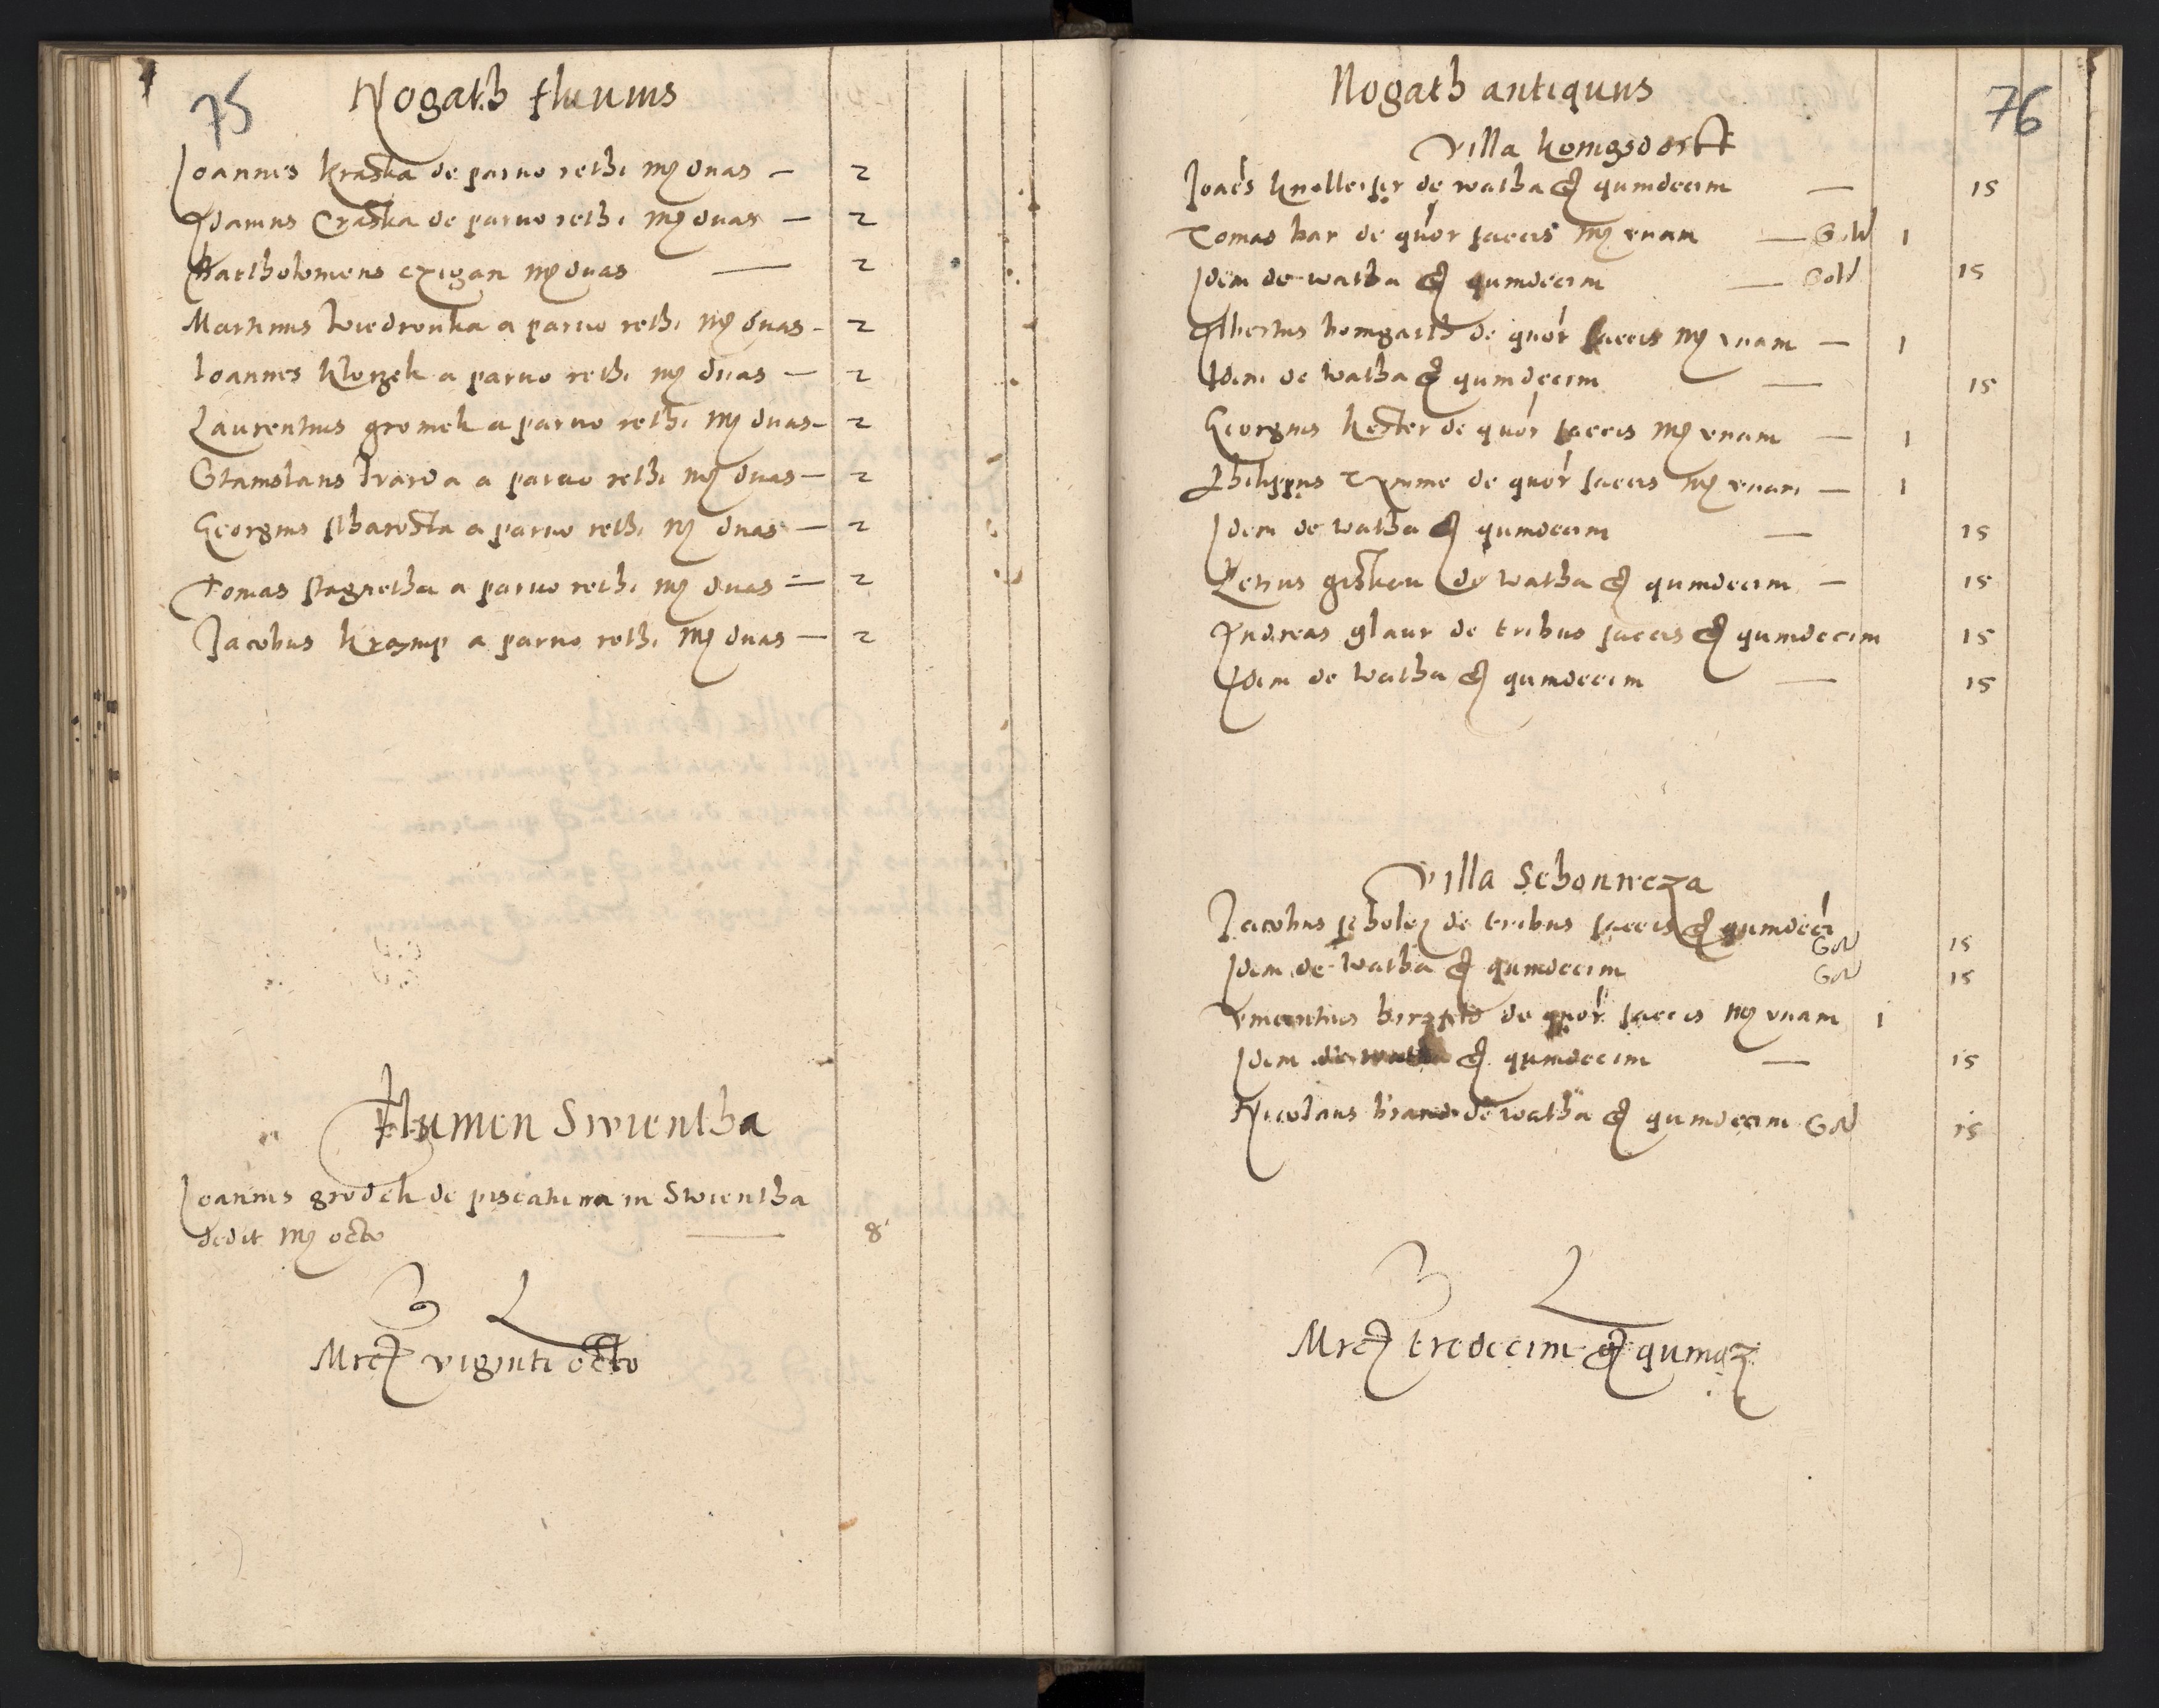 75
Nogath fluuius
Joannes Kraska de paruo rethi mr duas — 2
Adamus Craska de paruo rethi mr duas — 2
Bartholomeus czigan mr duas — 2
Martinus Wiedronka a paruo rethi mr duas — 2
Ioannes Klorzek a paruo rethi mr duas — 2
Laurentius gromek a paruo rethi mr duas — 2
Stanislaus twarda a paruo rethi mr duas — 2
Georgius a paruo rethi mr duas — 2
Tomas stagnetha a paruo rethi mr duas — 2
Jacobus Kramp a paruo rethi mr duas — 2
Flumen Swientha
Joannis grodek de piscatura in Swientha
dedit mr octo — 8
Mrcę viginti octo
76
Nogath antiquus
Villa Konigsdorff
Joaēs de watha gr quindecim — 15
Tomas bar de quor saccis mr vnam — Sold 1
Idem de watha gr quindecim — Sold 15
Albertus bomgarth de quor saccis mr vnam — 1
Idem de watha gr quindecim — 15
Georgius Kester de quor saccis mr vnam — 1
Philippus Tymme de quor saccis mr vnam — 1
Idem de watha gr quindecim — 15
Petrus giskau de watha gr quindecim — 15
Andreas glaur de tribus saccis gr quindecim 15
Idem de watha gr quindecim — 15
Villa Schonweza
Jacobus scholcz de tribus saccis gr quindeci Sol 15
Idem de watha gr quindecim Sol 15
Vincentius de quor saccis mr vnam 1
Idem de watha gr quindecim — 15
Nicolaus brand de watha gr quindecim Sol 15
Mrcę tredecim gr quinqz